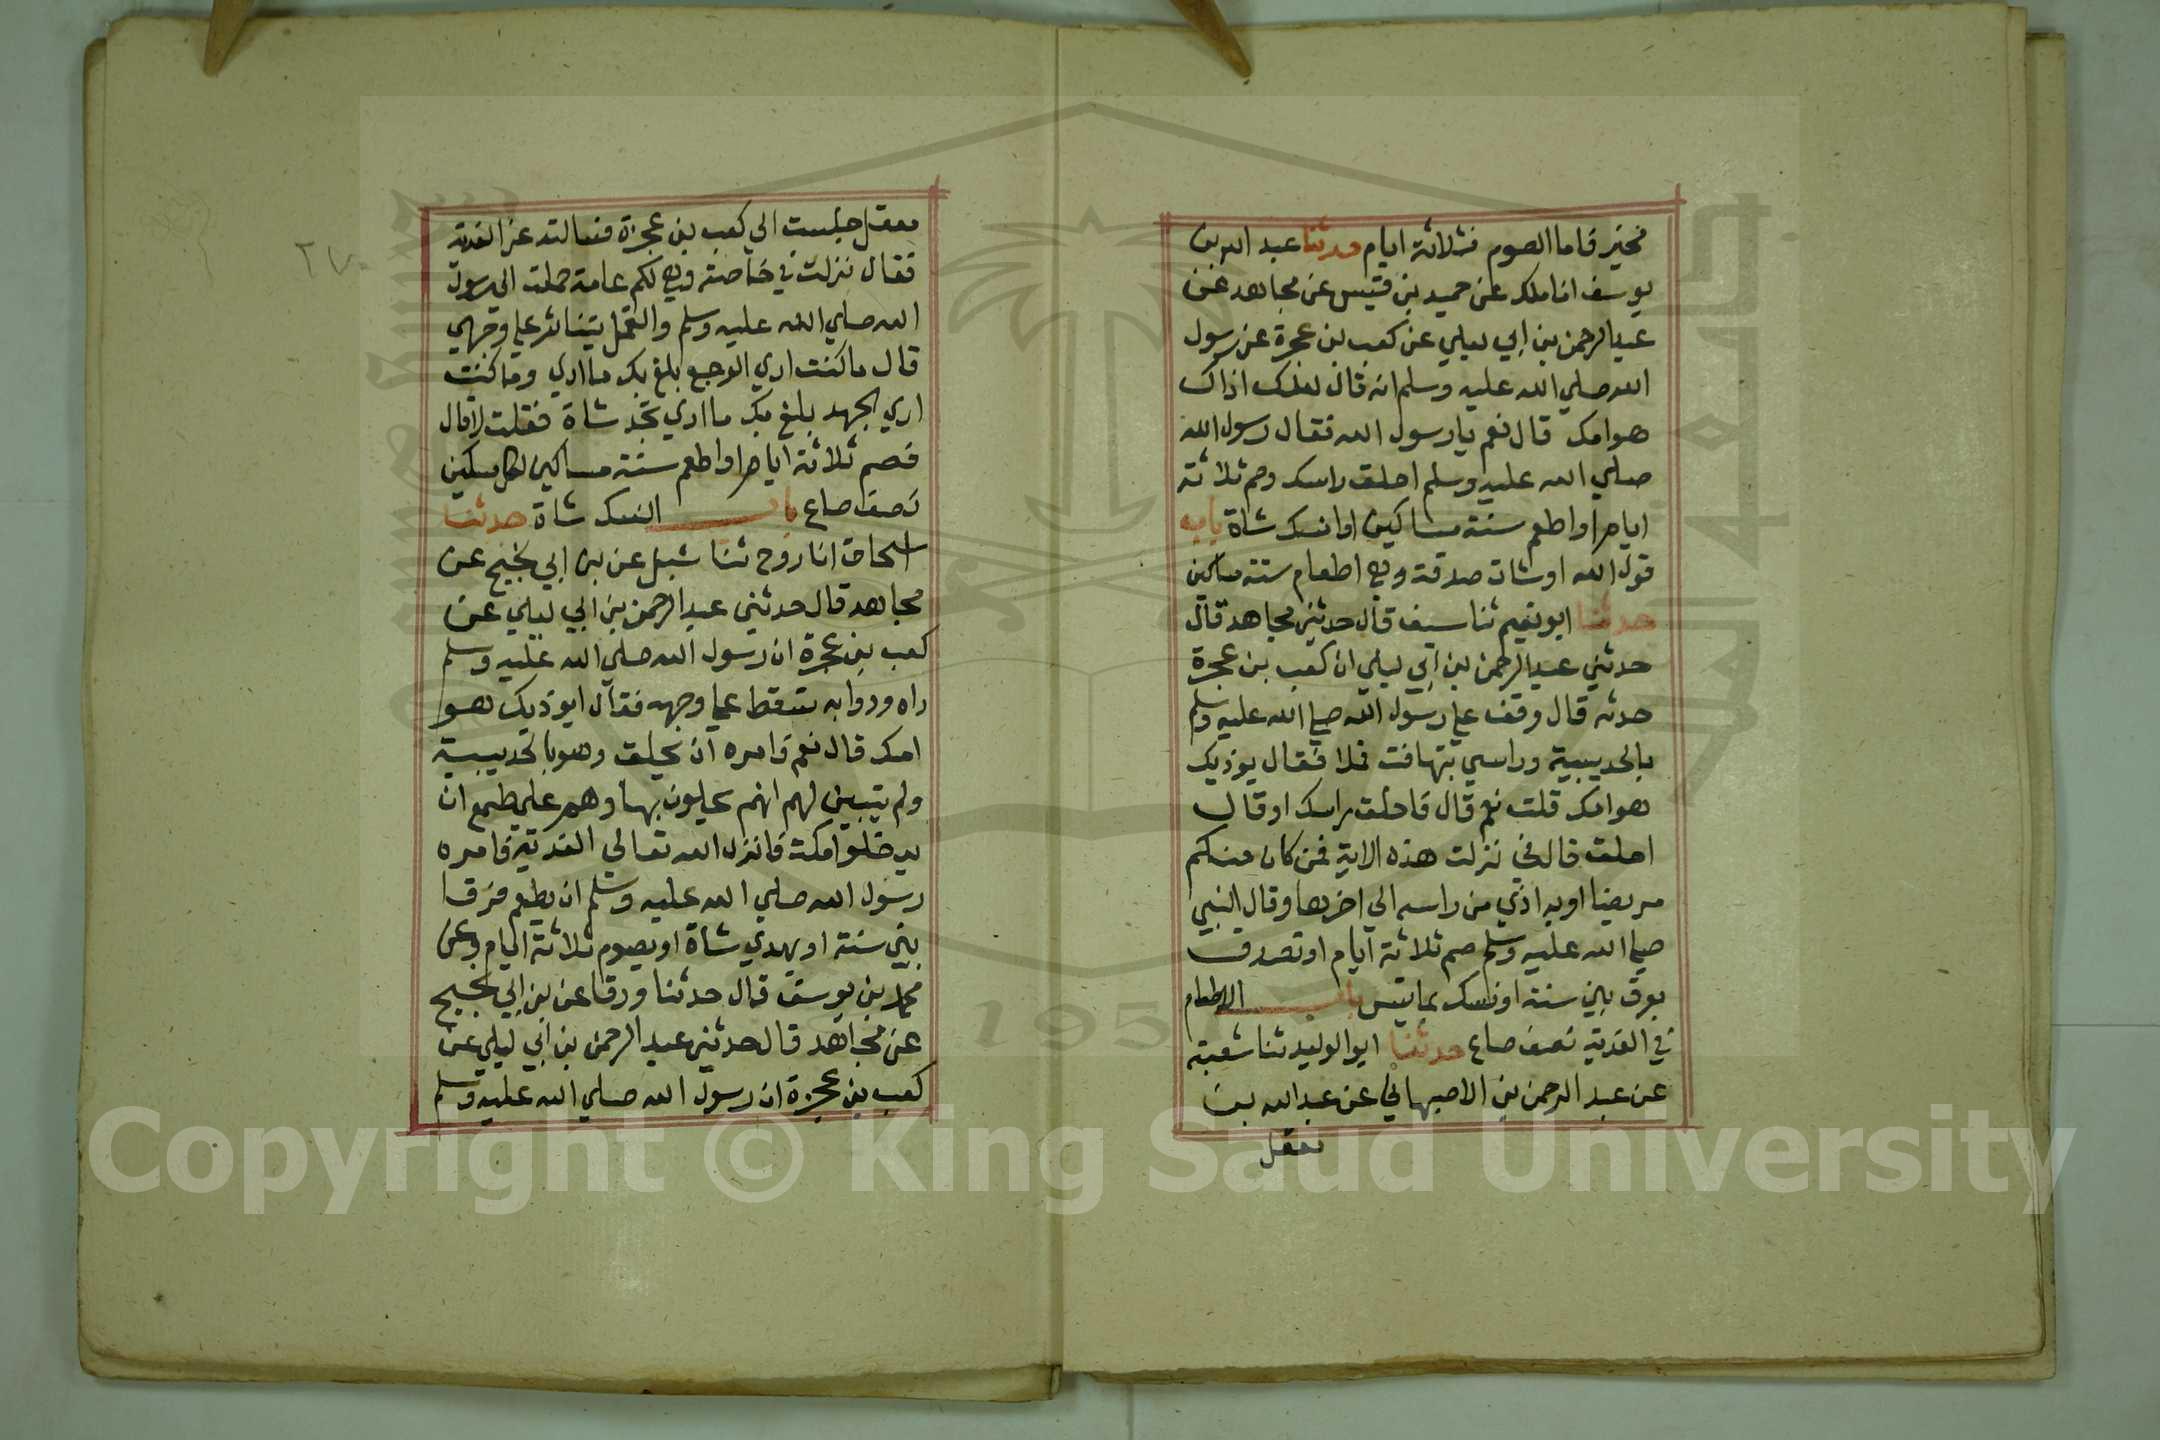 مخير فاما الصوم فثلاثة ايام حدثنا عبد الله بن
يوسف انا ملك عن حميد بن قيس عن مجاهد عن
عبد الرحمن بن ابي ليلي عن كعب بن عجرة عن رسول
الله صلي الله عليه وسلم انه قال لعلك اذاك
هوامك قال نعم يا رسول الله فقال رسول الله
صلي الله عليه وسلم احلق راسك وصم ثلاثة
ايام او اطعم ستة مساكين او انسك شاة باب
قول الله او صدقة وهي اطعام ستة مساكين
حدثنا ابو نعيم ثنا سيف قال حدثني مجاهد قال
حدثني عبد الرحمن بن ابي ليلي ان كعب بن عجرة
حدثه قال وقف علي رسول الله صلي الله عليه وسلم
بالحديبية وراسي يتهافت قملا فقال يوذيك
هوامك قلت نعم قال فاحلق راسك او قال
احلق قال في نزلت هذه الاية فمن كان منكم
مريضا او به اذي من راسه الي اخرها وقال النبي
صلي الله عليه وسلم صم ثلاثة ايام او تصدق
بفرق بين ستة او نسك بما تيسر باب الاطعام
في الفدية نصف صاع حدثنا ابو الوليد ثنا شعبة
عن عبد الرحمن بن الاصبهاني عن عبد الله بن
معقل
معقل جلست الي كعب بن عجرة فسالته عن الفدية
فقال نزلت في خاصة وهي لكم عامة حملت الي رسول
الله صلي الله عليه وسلم والقمل يتناثر علي وجهي
قال ما كنت اري الوجع بلغ بك ما اري وما كنت
اري الجهد بلغ بك ما اري تجد شاة فقلت لا قال
فصم ثلاثة ايام او اطعم ستة مساكين لكل مسكين
نصف صاع باب النسك شاة حدثنا
اسحاق انا روح ثنا شبل عن بن ابي نجيح عن
مجاهد قال حدثني عبد الرحمن بن ابي ليلي عن
كعب بن عجرة ان رسول الله صلي الله عليه وسلم
راه ودوابه تسقط علي وجهه فقال ايوذيك هو
امك قال نعم فامره ان يحلق وهو بالحديبية
ولم يتبين لهم انهم يحلون بها وهم علي طمع ان
يدخلوا مكة فانزل الله تعالي الفدية فامره
رسول الله صلي الله عليه وسلم ان يطعم فرقا
بين ستة او يهدي شاة او يصوم ثلاثة ايام وعن
محمد بن يوسف قال حدثنا ورقا عن بن ابي نجيح
عن مجاهد قال حدثني عبد الرحمن بن ابي ليلي عن
كعب بن عجرة ان رسول الله صلي الله عليه وسلم
Copyright © King Saud University
1957